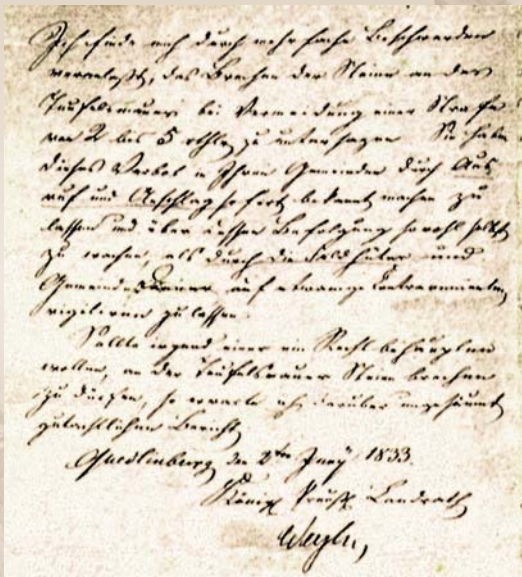 Ich finde mich durch mehrfache Beschwerden
veranlaßt, das Brechen der Steine an der
Teufelsmauer bei Vermeidung einer Strafe
von 2 bis 5 rthlr zu untersagen Sie haben
dieses Verbot in Ihren Gemeinden durch Aus
ruf und Anschlag sofort bekannt machen zu
lassen und über dessen Befolgung sowohl selbst
zu wachen, als durch die Feldhüter und
Gemeinde Diener auf etwanige Contravenienten
vigiliren zu lassen.
Sollte irgend einer ein Recht behaupten
wollen, an der Teufelsmauer Steine brechen
zu dürfen, so erwarte ich darüber ungesäumt
gutachtlichen Bericht,
Quedlinburg den 2ten Juny 1833.
Königl Preuß. Landrath,
Weyhe,